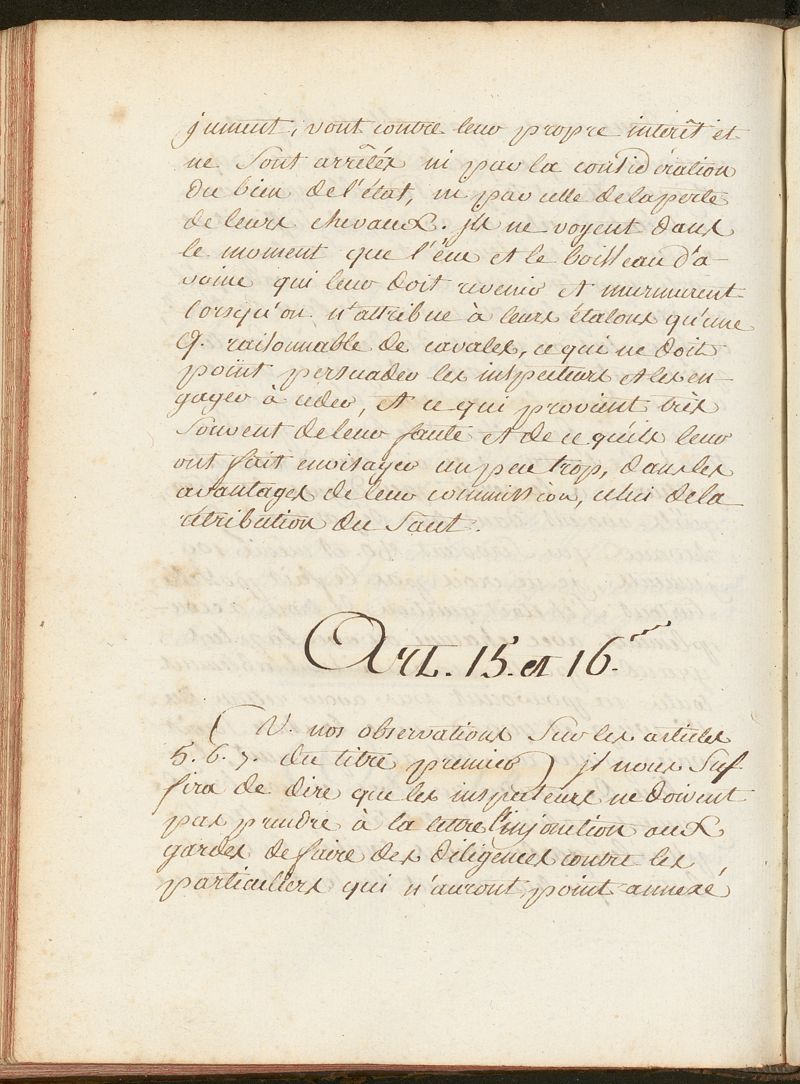 jument, vont contre leur propre interêt et
ne sont arrêtés ni par la considération
du bien de l'état, ni par celle de la perte
de leurs chevaux. jls ne voyent dans
le moment que l'écu et le boisseau d'a
voine qui leur doit revenir et murmurent
lorsqu'on n'attribue à leurs étalons qu'une
q. raisonnable de cavales, ce qui ne doit
point persuader les inspecteurs et les en-
gager à ceder, et ce qui provient très
souvent de leur faute et de ce qu'ils leur
ont fait envisager un peu trop, dans les
avantages de leur commission, celui de la
rétribution du saut.
Art. 15. et 16.
(V. nos observations sur les articles
5. 6. 7. du titre premier) jl nous suf
fira de dire que les inspecteurs ne doivent
pas prendre à la lettre l'injonction aux
gardes de faire des diligences contre les
particuliers qui n'auront point annexé